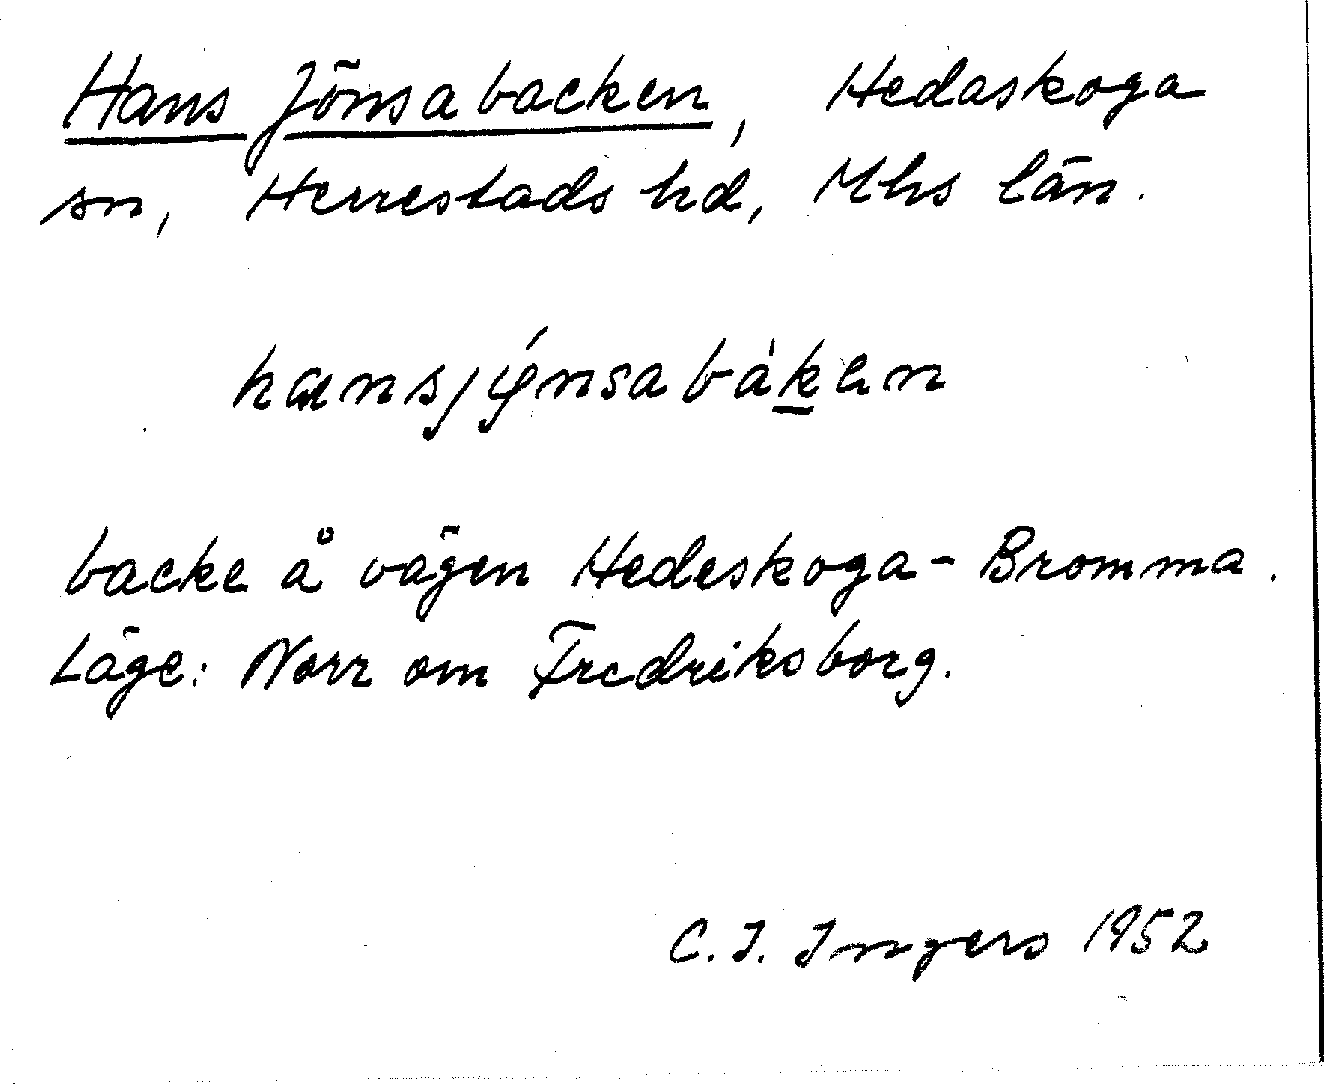 Hans Jönsabacken, Hedaskoga
sn, Herrestads hd, Mhs län.
hansjýnsabàken
backe å vägen Hedeskoga - Bromma.
Läge: Norr om Fredriksborg.
C. I. Ingers 1952